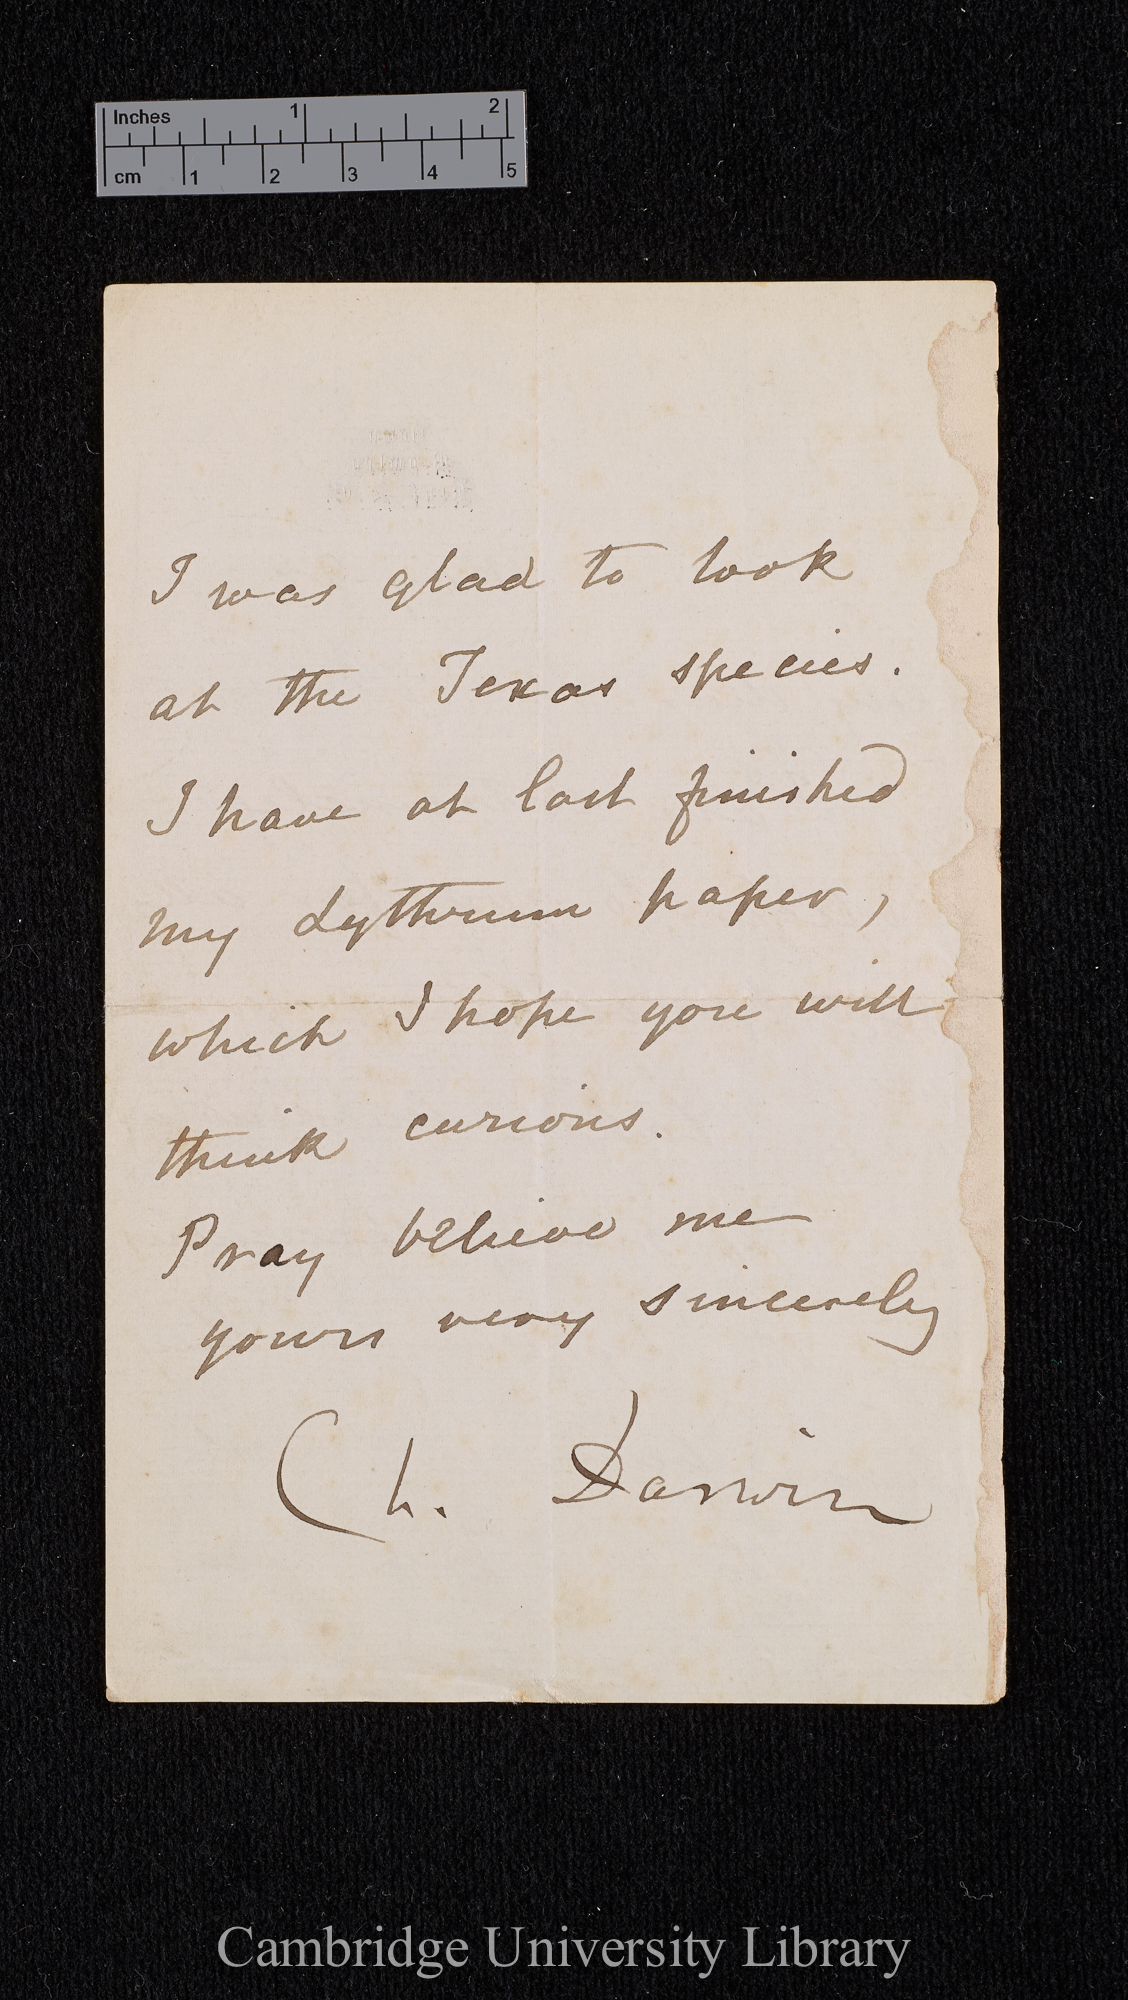 Inches 1 2
cm 1 2 3 4 5
I was glad to look
at the Texas species.
I have at last finished
my Lythrum paper,
which I hope you will
think curious.
Pray believe me
yours very sincerely
Ch. Darwin
Cambridge University Library